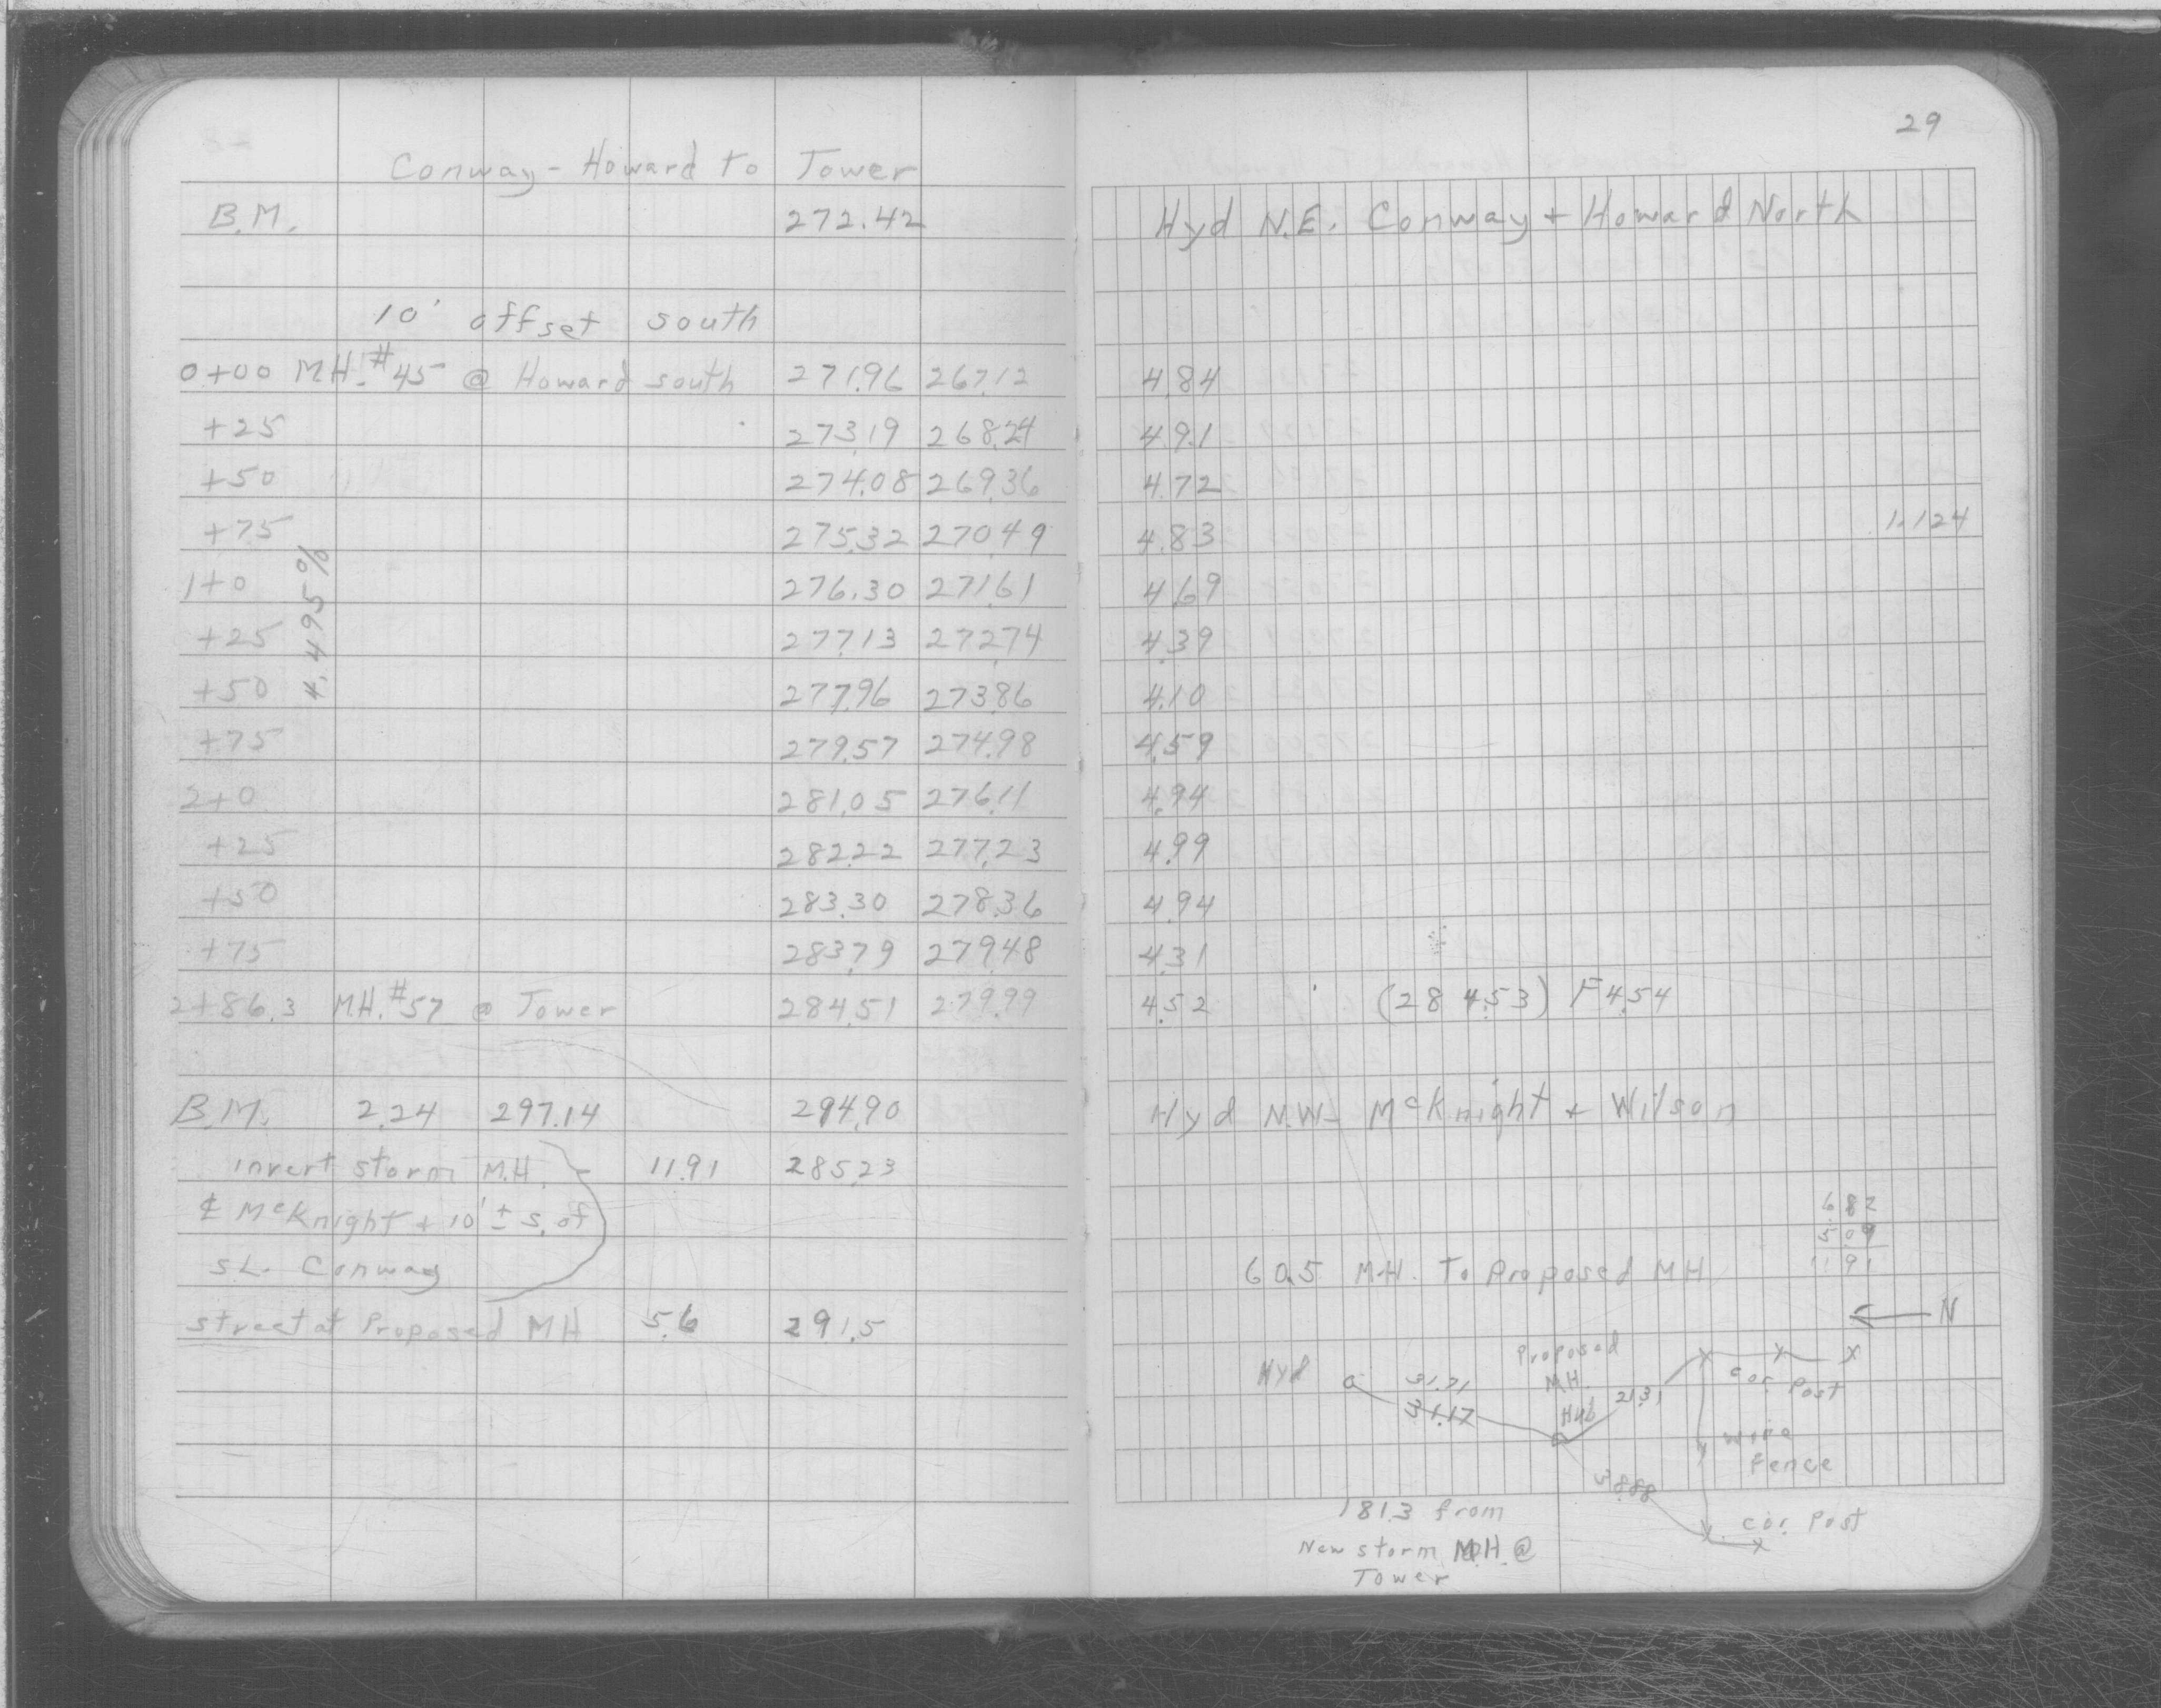 29
Conway - Howard to Tower
B.M. 272.42 Hyd N.E. Conway + Howard North
10' offset south
0+00 M.H. #45 @ Howard south 271.96 267.12 4.84
+25 273.19 268.24 4.91
+50 274.08 269.36 4.72
+75 275.32 270.49 4.83 1.124
1+0 276.30 271.61 4.69
4.495%
+25 277.13 272.74 4.39
+50 277.96 273.86 4.10
+75 279.57 274.98 4.59
2+0 281.05 276.11 4.94
+25 282.22 277.23 4.99
+50 283.30 278.36 4.94
+75 283.79 279.48 4.31
2+86.3 M.H. #57 @ Tower 284.51 279.99 4.52 (284.53) F4.54
B.M. 2.24 297.14 294.90 Hyd N.W. McKnight + Wilson
invert storm M.H. 11.91 285.23
℄ McKnight + 10' ± s. of
S.L. Conway
6.82
5.09
11.91
60.5 M.H. To Proposed MH
street at Proposed MH 5.6 291.5
N
Hyd 31.71 Proposed
M.H.
31.17 Hub 21.31 cor. Post
wire
fence
38.88
cor. Post
181.3 from
New storm M.H. @
Tower